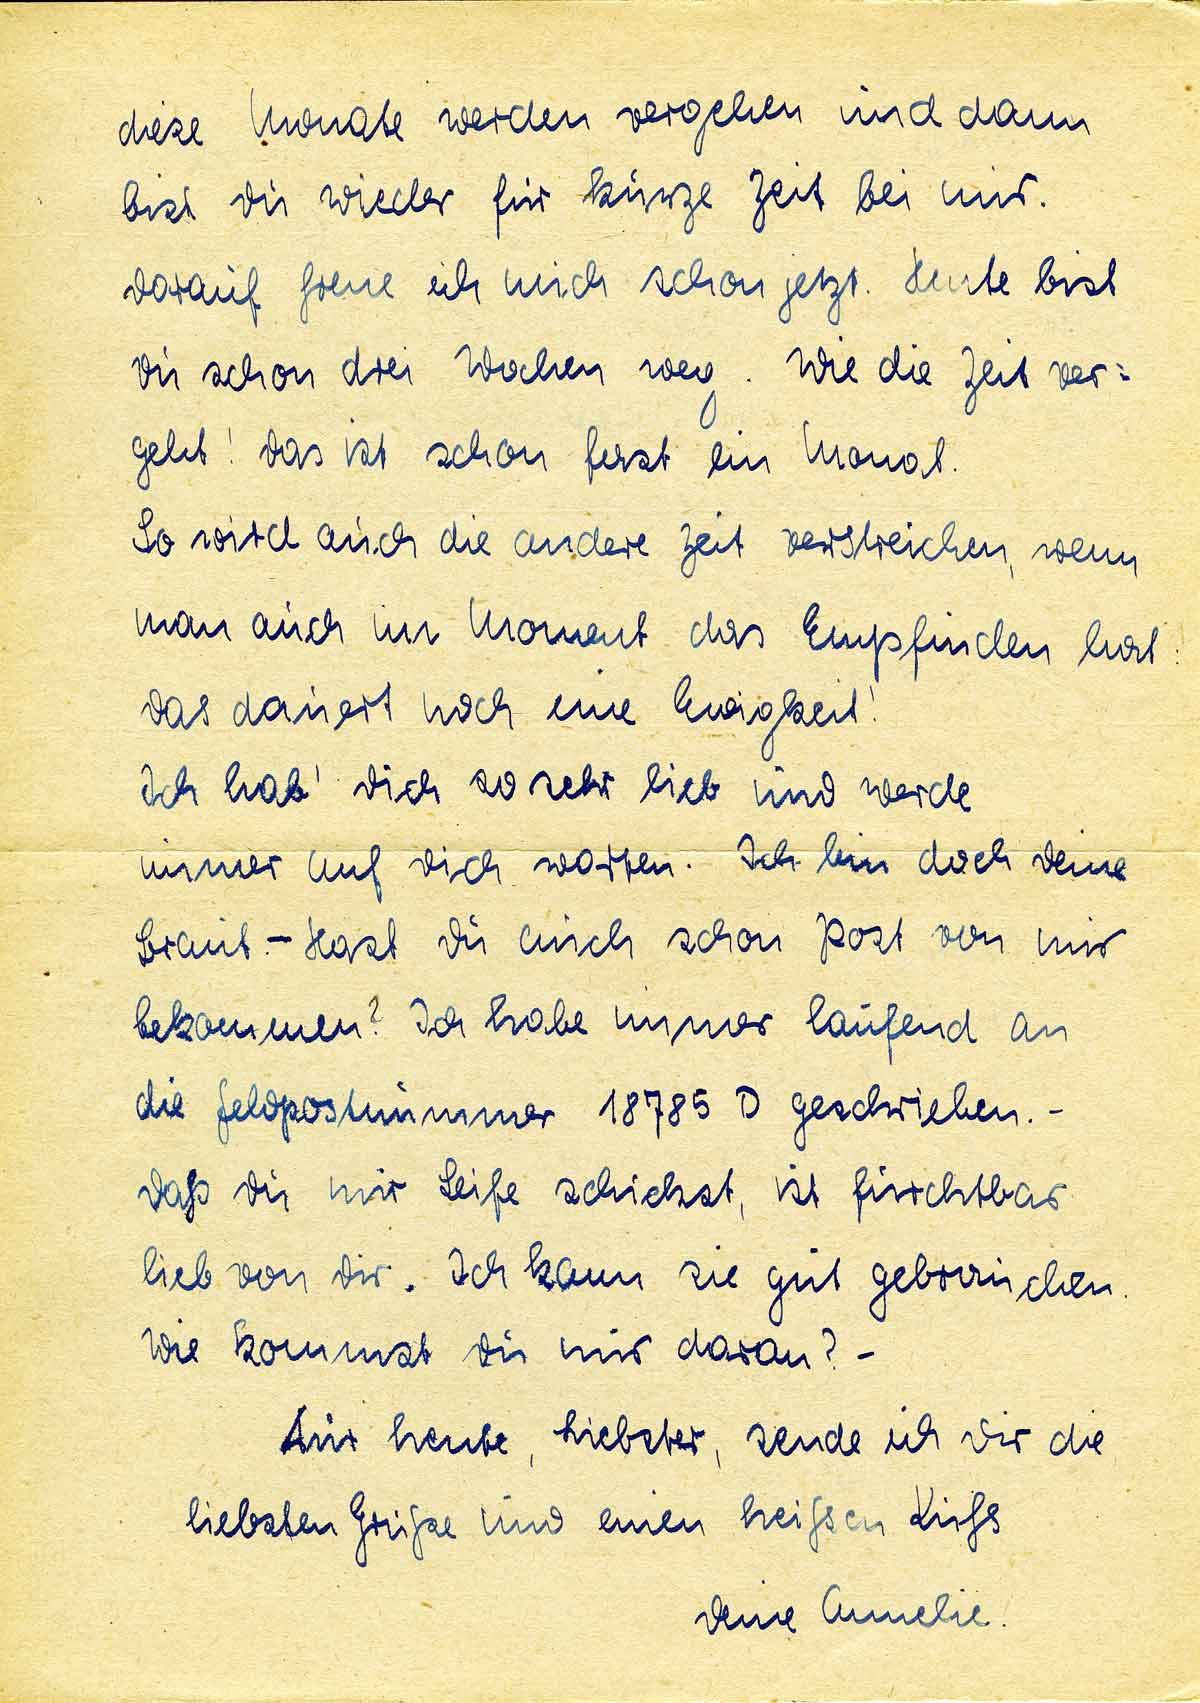 diese Monate werden vergehen und dann
bist Du wieder für kurze Zeit bei mir.
Darauf freue ich mich schon jetzt. Heute bist
Du schon drei Wochen weg. Wie die Zeit ver=
geht! Das ist schon fast ein Monat.
So wird auch die andere Zeit verstreichen, wenn
man auch im Moment das Empfinden hat:
Das dauert noch eine Ewigkeit!
Ich hab' Dich so sehr lieb und werde
immer auf Dich warten. Ich bin doch Deine
Braut. - Hast Du auch schon Post von mir
bekommen? Ich habe immer laufend an
die Feldpostnummer 18785 D geschrieben. -
Daß Du mir Seife schickst, ist furchtbar
lieb von Dir. Ich kann sie gut gebrauchen.
Wie kommst Du nur daran? -
Für heute, Liebster, sende ich Dir die
liebsten Grüße und einen heißen Kuß
Deine Annelie.